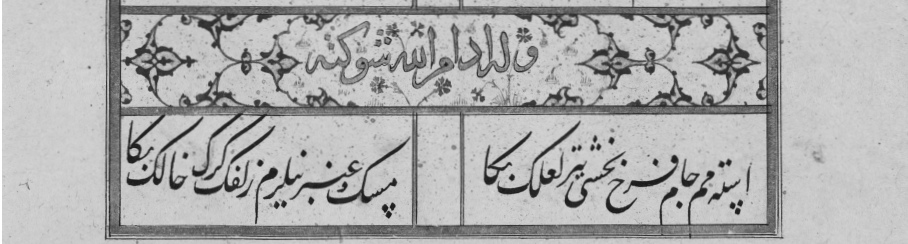 وله ادام الله شوكته
ایسته مم جام فرح بخشی یتر لعلک بکا
مسک عنبر نیلرم زلفک کرک خالک بکا